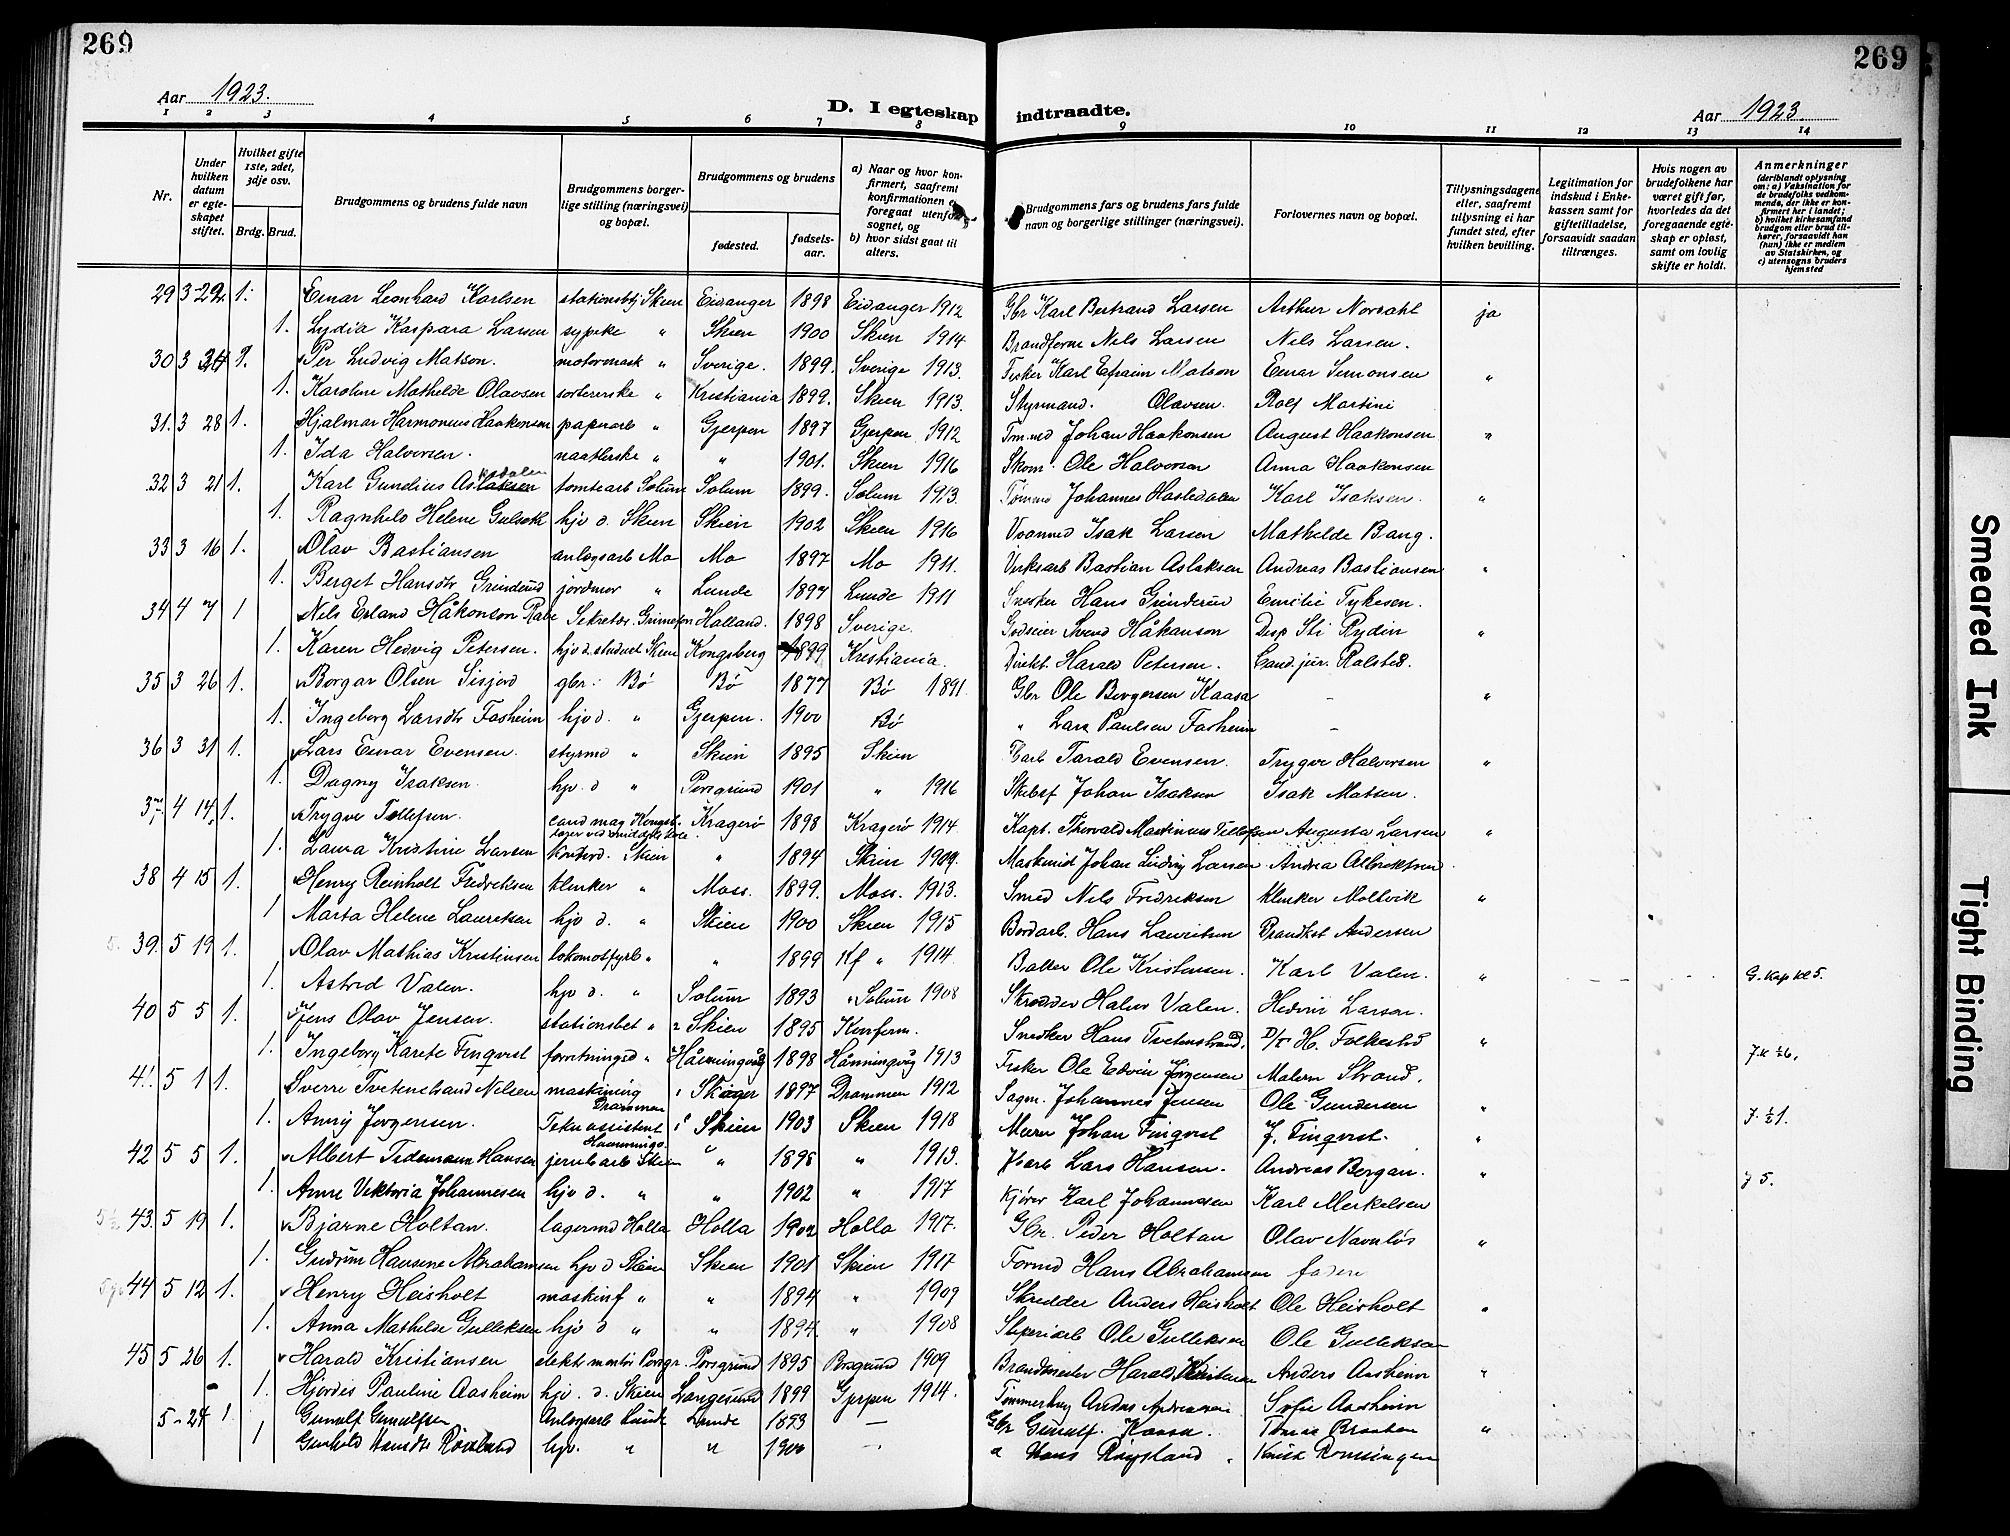 269
269
Aar 1923.
D. I egteskap indtraadte.
Aar 1923.
1 2 3 4 5 6 7 8 9 10 11 12 13 14
Nr.
Under hvilken datum er egteskapet stiftet.
Hvilket gifte 1ste, 2det, 3dje osv.
Brdg. Brud.
Brudgommens og brudens fulde navn
Brudgommens borgerlige stilling (næringsvei) og bopæl.
Brudgommens og brudens
fødested.
fødselsaar.
a) Naar og hvor konfirmert, saafremt konfirmationen foregaat utenfor sognet, og b) hvor sidst gaat til alters.
Brudgommens fars og brudens fars fulde navn og borgerlige stillinger (næringsvei).
Forlovernes navn og bopæl.
Tillysningsdagene eller, saafremt tillysning ei har fundet sted, efter hvilken bevilling.
Legitimation for indskud i Enkekassen samt for giftetilladelse, forsaavidt saadan tiltrænges.
Hvis nogen av brudefolkene har været gift før, hvorledes da det foregaaende egteskap er opløst, samt om lovlig skifte er holdt.
Anmerkninger (deriblandt oplysning om: a) Vaksination for de brudefolks vedkommende, der ikke er konfirmert her i landet; b) hvilket kirkesamfund brudgom eller brud tilhører, forsaavidt han (hun) ikke er medlem av Statskirken, og c) utensogns bruders hjemsted
29 3 22 1. Einar Leonhard Karlsen stationsbtj Skien Eidanger 1898 Eidanger 1912 Gbr Karl Bertrand Larsen Arthur Nordahl ja
1. Lydia Kaspara Larsen sypike " Skien 1900 Skien 1914 Brandform Nils Larsen Nils Larsen.
30 3 24 Per Ludvig Matson. motormask " Sverige. 1899. Sverige 1913. Fisker Karl Efraim Matson Einar Simonsen "
1. Karoline Mathilde Olavsen sorterske " Kristiania 1899. Skien 1913. Styrmand. Olavsen. Rolf Martini
31. 3 28 1. Hjalmar Harmonius Haakonsen papirarb " Gjerpen 1897 Gjerpen 1912 Tm.md Johan Haakonsen August Haakonsen "
1. Ida Halvorsen. naatlerske " " 1901. Skien 1916 Skom. Ole Halvorsen Anna Haakonsen
32 3 21 1. Karl Gundius tomtearb Solum Solum 1899. Solum 1913. Tømmd Johannes Hasledalen Karl Isaksen. "
1. Ragnhild Helene Gulset hjv d. Skien Skien 1902 Skien 1916 Vognmd Isak Larsen Mathilde Bang.
33 3 16 1. Olav Bastiansen anlægsarb Mo Mo 1897 Mo 1911. Verksarb Bastian Aslaksen Andreas Bastiansen "
1. Berget Hansdtr Grinderud jordmor " Lunde 1897 Lunde 1911 Snekker Hans Grinderud Emilie Tykesen.
34 4 7 1 Nils Erland Håkonson Rabe Sekretær. Holland. 1898 Sverige. Godseier Svend Håkanson Disp Sti Rydin "
1. Karen Hedvig Petersen. hjv d. student Skien Kongsberg 1899 Kristiania. Direkt. Harald Petersen. Cand. jur. Ralsted.
35 3 26 1. Borgar Olsen Sisjord gbr. Bø Bø 1877 Bø 1891. Gbr Ole Bergersen Kaasa – "
1. Ingeborg Larsdtr Fosheim hjv d. " Gjerpen. 1900 Bø " Lars Paulsen Fosheim –
36 3 31 1. Lars Einar Evensen. styrmd " Skien 1895 Skien Tarald Evensen. Trygve Halvorsen "
1. Dagny Isaksen. hjv. d " Porsgrund 1901 " 1916 Skibsf Johan Isaksen Isak Matsen.
37 4 14 1. Trygve Tellefsen. cand mag Kongsb. Kragerø 1898 Kragerø 1914. Kapt. Thorvald Martinius Tellefsen Augusta Larsen "
1. Laura Kristine Larsen kontord. Skien " 1894 Skien 1909. Maskinist Johan Ludvig Larsen Andrea Albrektsen
38 4 15 1. Henry Reinholt Fredriksen klinker " Moss. 1899. Moss. 1913. Smed Nils Fredriksen klinker Moltvik "
1 Marta Helene Lauretsen hjv d. " Skien 1900 Skien 1915 Bordarb. Hans Lauritsen Brandkst Andersen
39. 5 19 1. Olav Mathias Kristensen lokomotfyrb " " 1899 Kf " 1914. Baker Ole Kristensen. Karl Valen. " G. Kap Kl 5.
1. Astrid Valen. hjv d. " Solum 1893 " Solum 1908 Skrædder Halvor Valen. Hedvin Larsen.
40 5 5 1. Jens Olav Jensen. stationsbet " Skien 1895 Konfirm. Snedker Hans Tvetenstrand. D/r H. Folkestad " J.k ½6.
1. Ingeborg Karete Finqvist forretningsd " Håenningvåg 1898 Hånningvåg 1913 Fisker Ole Edvin Jørgensen Malern Strand.
41. 5 1 1. Sverre Tvetenstrand Nilsen maskining Drammen Skåger 1897 Drammen 1912 Sagm. Johannes Jensen Ole Gundersen " J. ½1.
1. Anny Jørgensen. Tekn assistent Skien 1903 Skien 1918 Johan Finqvist J. Finqvist. "
42 5 5 1. Albert Tidemann Hansen jernbarb Skien " 1898 " 1913. Lars Hansen. Andreas Bergan. " J 5.
1. Anne Viktoria Johannesen hjv d. " " 1902 " 1917 Kjører Karl Johannesen Karl Merkelsen
43. 5 19 1. Bjarne Holtan. lagermd Holla Holla 1902 Holla 1917. Gbr. Peder Holtan Olav Navnløs "
1. Gudrun Hansine Abrahamsen hjv d Skien Skien 1901 Skien 1917 Formd Hans Abrahamsen faderen
44 5 12 1. Henry Heisholt maskinf " " 1894 " 1909 Skredder Anders Heisholt Ole Heisholt "
1. Anna Mathilde Gulleksen hjv d " " 1894. " 1908 Sliperiarb Ole Gulleksen Ole Gulleksen
45 5 26 1. Harald Kristiansen elekt montør Porsgr. Porsgrund 1895 Porsgrund 1909 Brandmester Harald Kristiansen Anders Aasheim "
1. Hjørdis Pauline Aasheim hjv. d. Skien Langesund 1899 Gjerpen 1914. Tømmerhug Anders Andreassen Sofie Aasheim
5-24 1 Gunulf Gunulfsen Anlægsarb Lunde Lunde 1893 — Gbr Gunulf. Kaasa. Tomas Braaten "
1 Gunhild Hansdtr Røisland hjv. " " 1900 — " Hans Røysland Knut Romsingen
Smeared Ink
Tight Binding